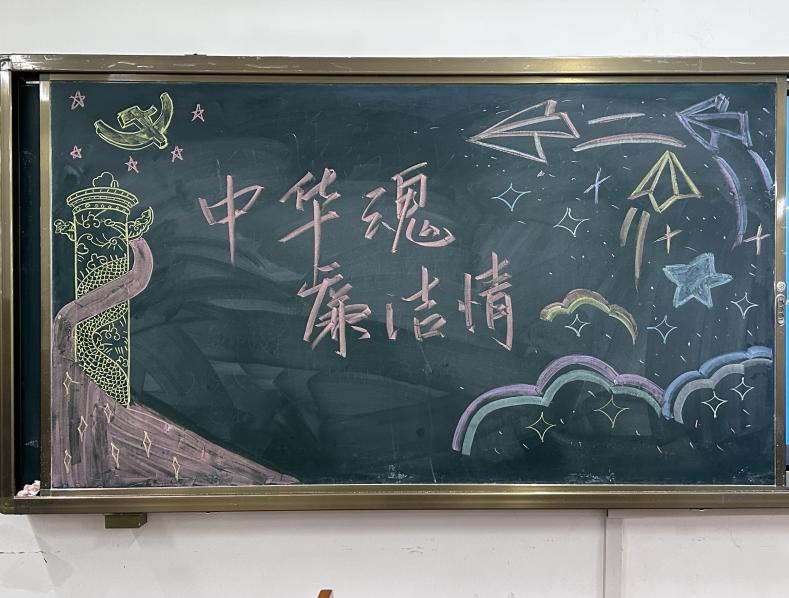 中华魂
廉洁情